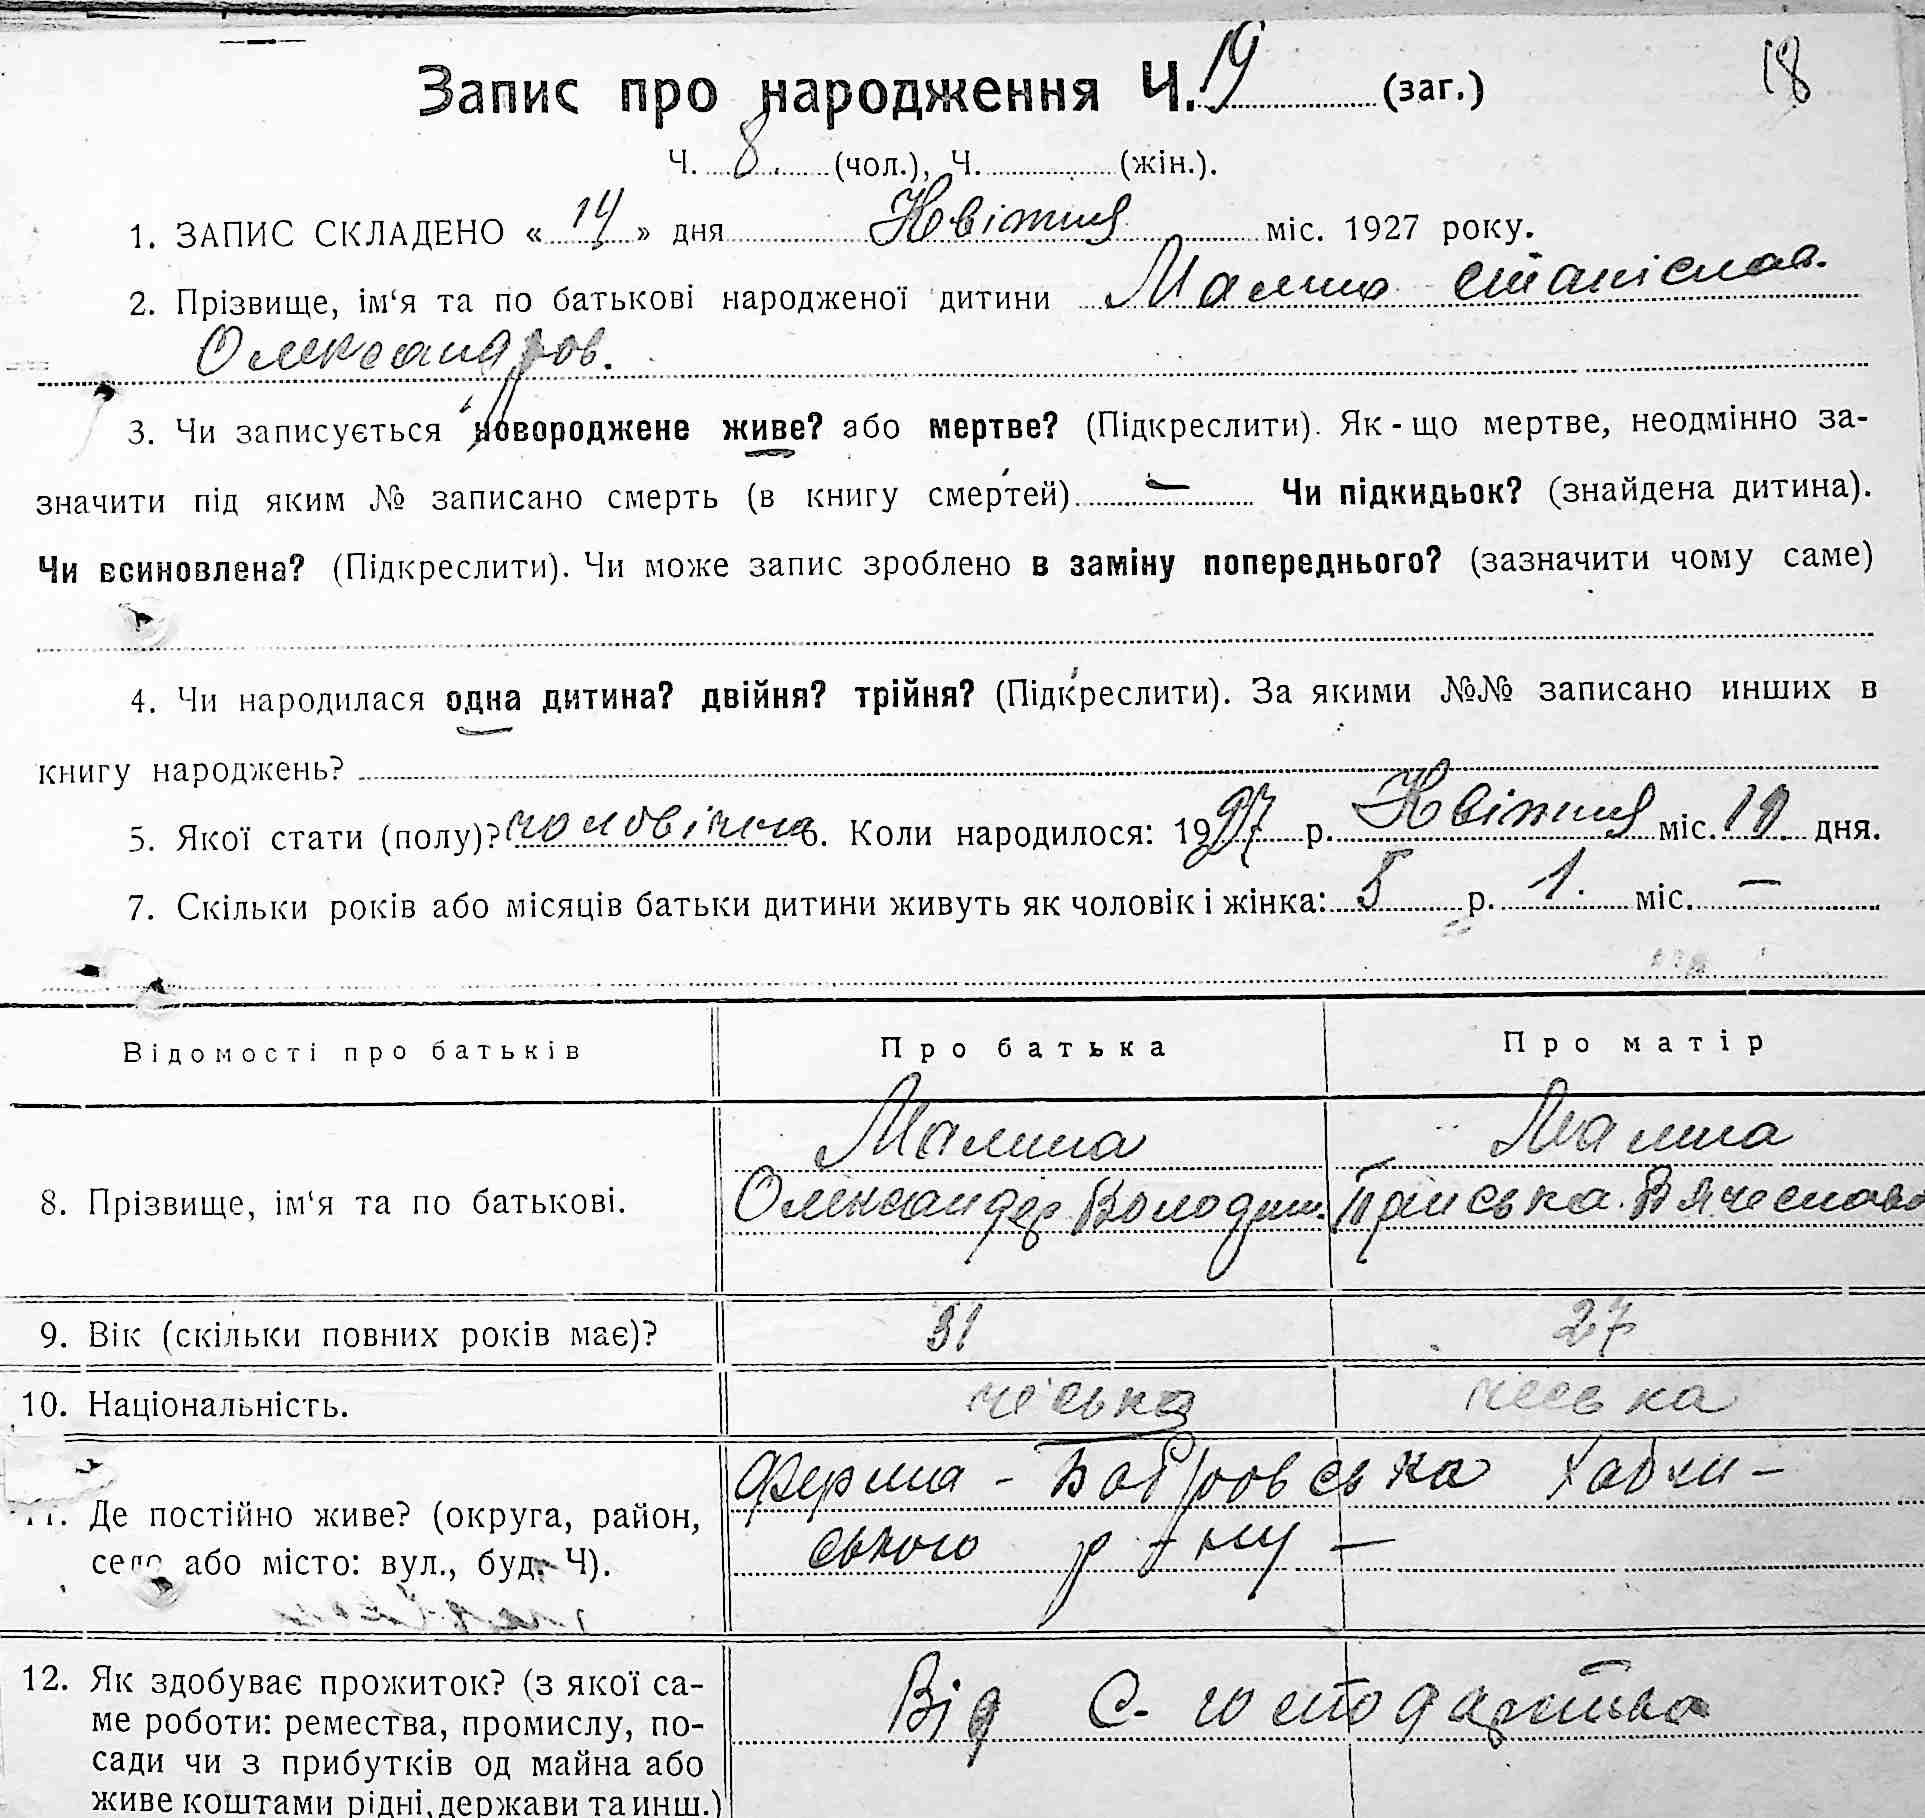 18
Запис про народження Ч. 19 (заг.)
Ч. 8. (чол.), Ч. (жін.).
1. ЗАПИС СКЛАДЕНО « 14 » дня Квітня міс. 1927 року.
2. Прізвище, ім‘я та по батькові народженої дитини Малина Станіслав.
Олександров.
3. Чи записується новороджене живе? або мертве? (Підкреслити). Як - що мертве, неодмінно за-
значити під яким № записано смерть (в книгу смертей) — Чи підкидьок? (знайдена дитина).
Чи всиновлена? (Підкреслити). Чи може запис зроблено в заміну попереднього? (зазначити чому саме)
4. Чи народилася одна дитина? двійня? трійня? (Підкреслити). За якими №№ записано инших в
книгу народжень?
5. Якої стати (полу)? чоловіча 6. Коли народилося: 1927 р. Квітня міс. 10. дня.
7. Скільки років або місяців батьки дитини живуть як чоловік і жінка: 5 р. 1. міс. —
Відомості про батьків Про батька Про матір
Малина Малина
8. Прізвище, ім‘я та по батькові. Олександер Володим. Вячеслав
9. Вік (скільки повних років має)? 31 27
10. Національність. чеська чеська
ферма - Бобровська Хабен-
11. Де постійно живе? (округа, район, ського р-ну —
село або місто: вул., буд. Ч).
12. Як здобуває прожиток? (з якої са- Від С. господарства
ме роботи: ремества, промислу, по-
сади чи з прибутків од майна або
живе коштами рідні, держави та инш.)